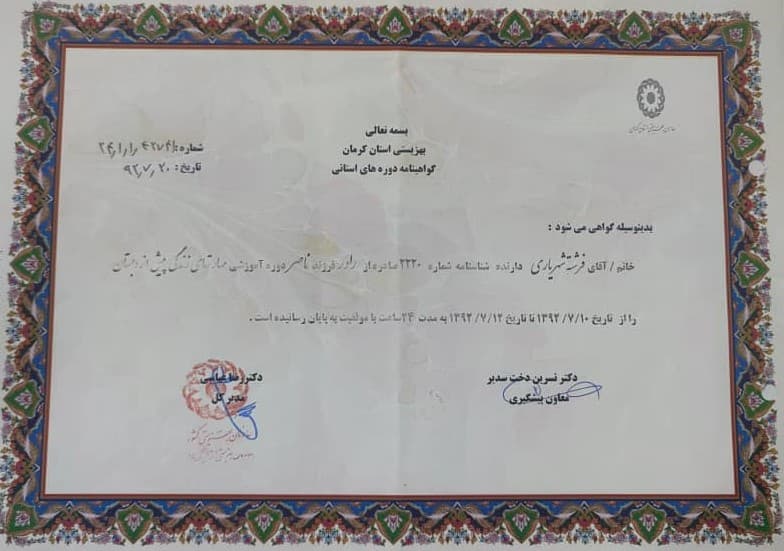 بسمه تعالی
بهزیستی استان کرمان
گواهینامه دوره های استانی
شماره :
تاریخ : ۹۲٫۷٫۲۰
بدینوسیله گواهی می شود :
خانم / آقای فرشته شهریاری دارنده شناسنامه شماره ۲۲۲۰ صادره از راور فرزند ناصر دوره آموزشی مهارتهای زندگی پیش از دبستان
را از تاریخ ۱۳۹۲/۷/۱۰ تا تاریخ ۱۳۹۲/۷/۱۲ به مدت ۲۴ساعت با موفقیت به پایان رسانیده است .
دکتر نسرین دخت سدیر
معاون پیشگیری
دکتر رضا عباسی
مدیر کل